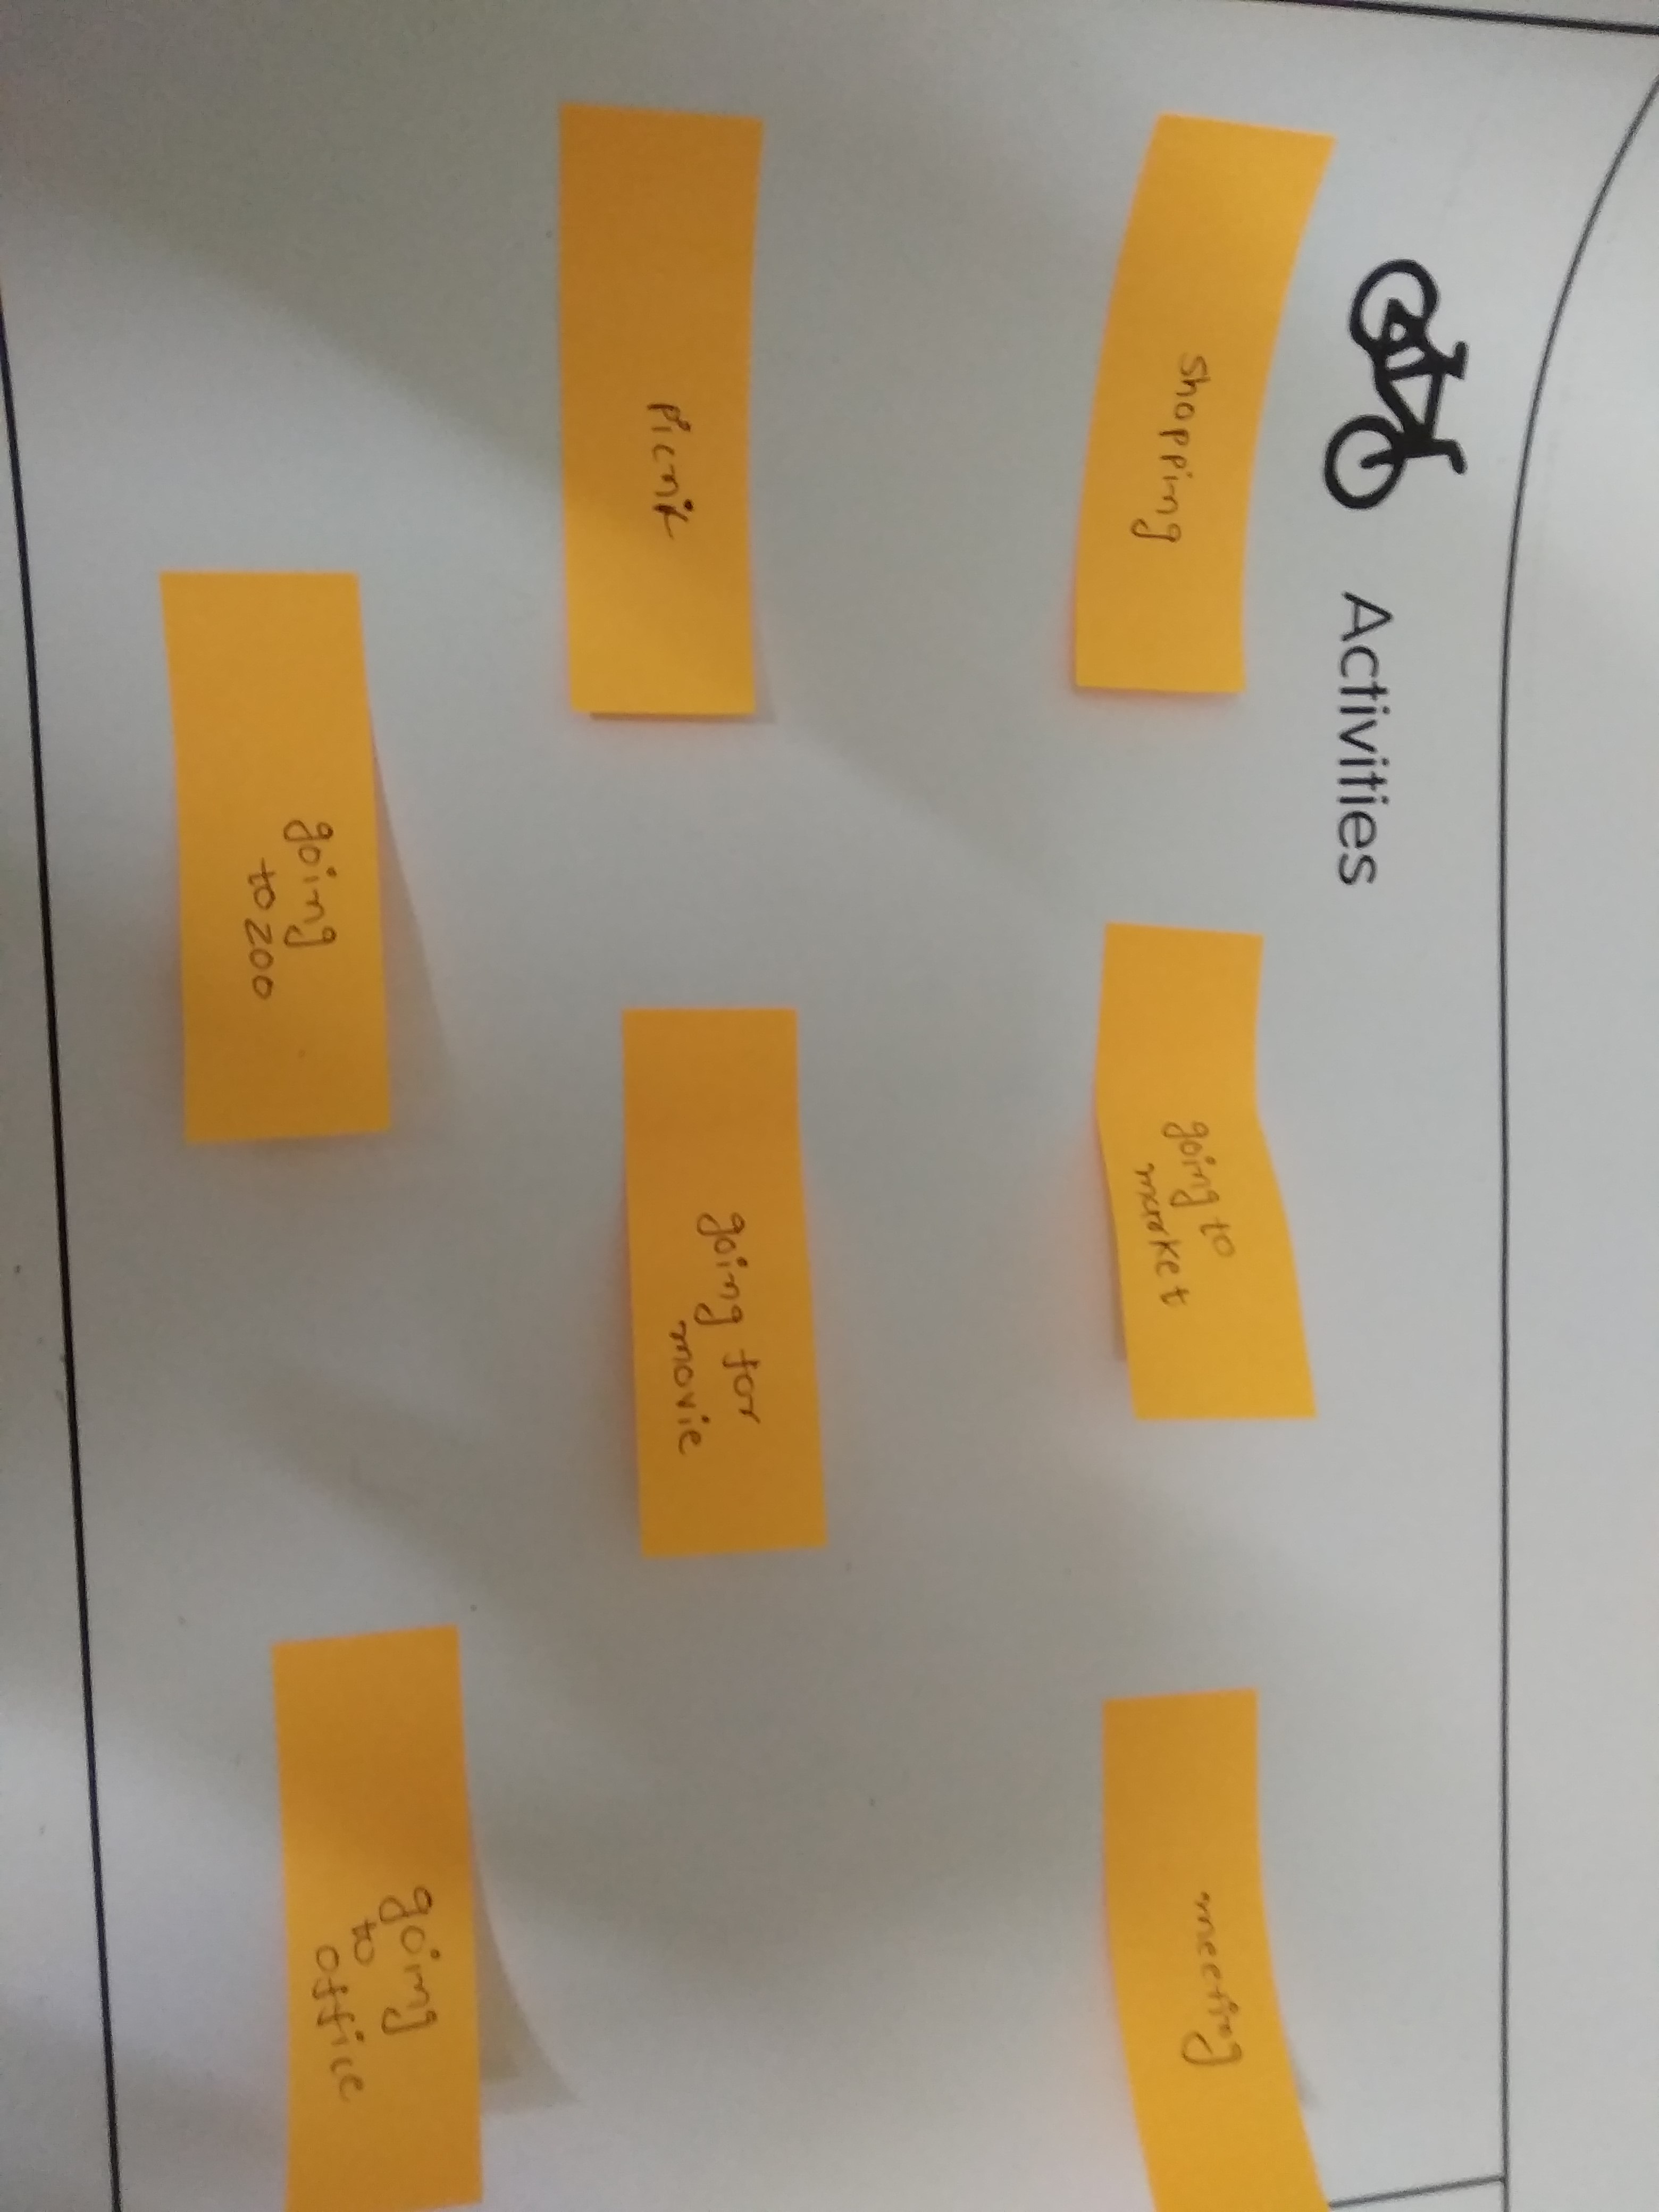 Activities
shopping
going to
market
meeting
Picnik
going for
movie
going
to zoo
going
to
office